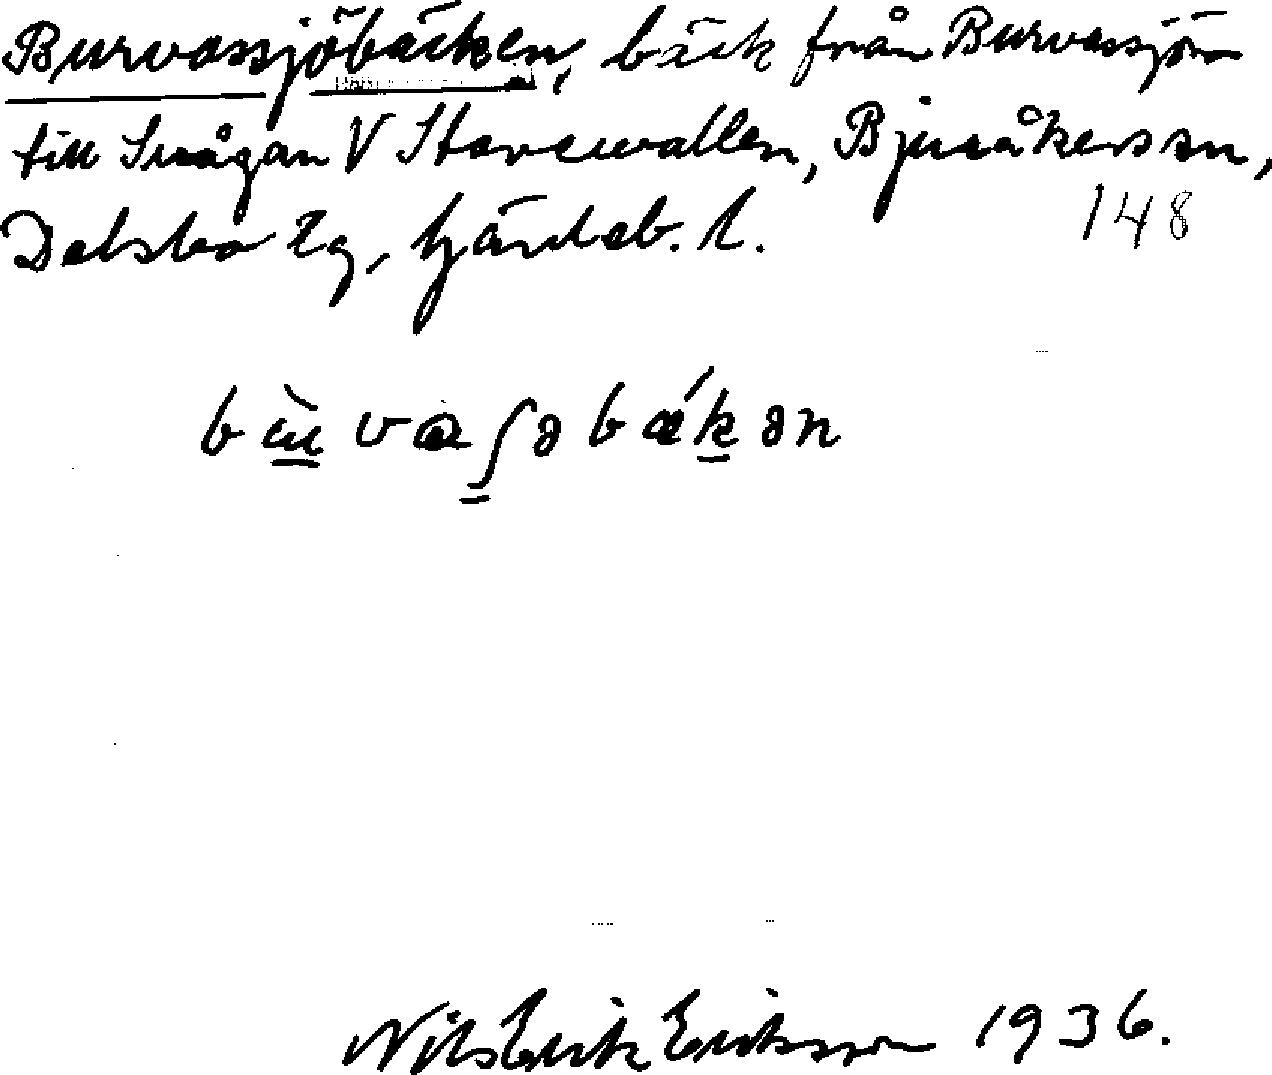 Burvassjöbäcken, bäck från Burvassjön
till Svågan V Storsvallen, Bjuråkers sn,
Delsbo tg, Gävleb. l. 148
bùvaʃəbǽkən
Nils Erik Eriksson 1936.